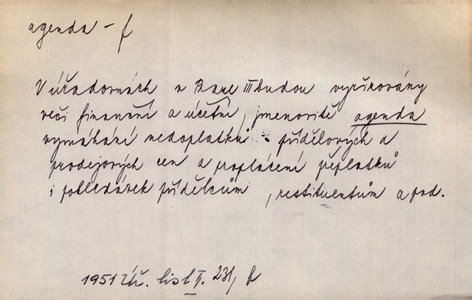 agenda - f
V úřadovnách v Praze III budou vyřizovány
věci finanční a účetní, jmenovitě agenda
vymáhání nedoplatků přídělových a
prodejových cen a proplácení přeplatků
i pohledávek přídělcům, restituentům a pod.
1951 Úř. list II. 231, f